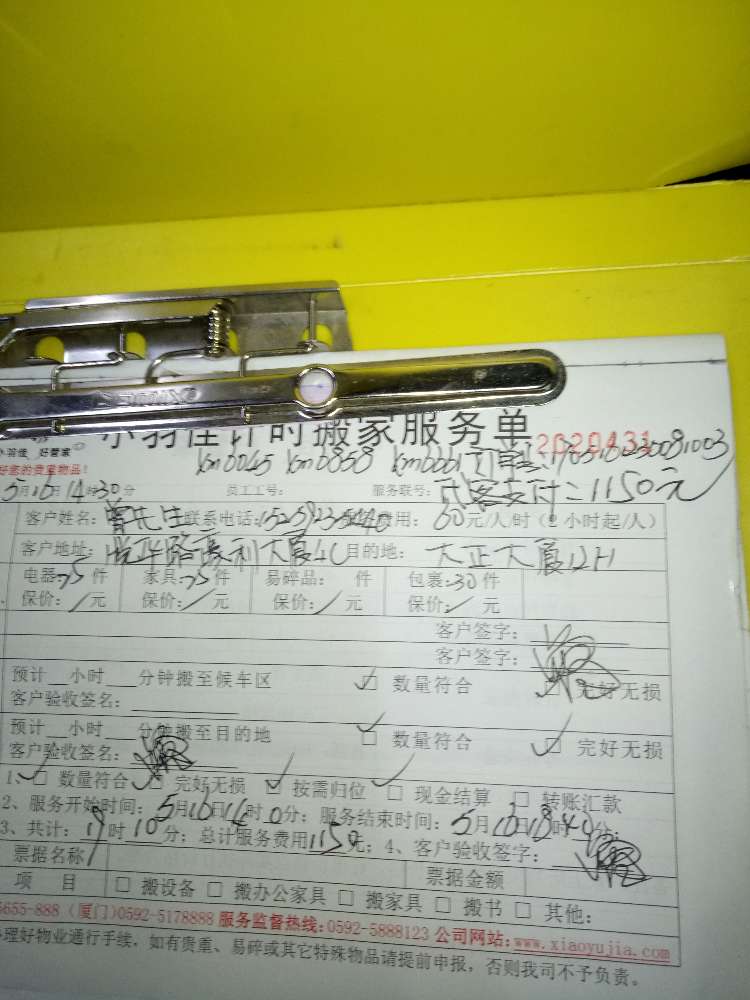 小羽佳计时搬家服务单
小羽佳 好管家
2020431
好您的贵重物品!
km6045 km6858 km6661
5月16日14时30分 员工工号: 服务联号: 支付:1150元
客户姓名: 曾先生 联系电话: 费用: 60元/人/时(2小时起/人)
客户地址: 大厦4C 目的地: 大正大厦12H
电器:75件 家具:75件 易碎品: 件 包裹:30件
保价:/元 保价:/元 保价:/元 保价:/元
客户签字:
客户签字:
预计__小时___分钟搬至候车区 ☑ 数量符合 ☑ 完好无损
客户验收签名:
预计__小时___分钟搬至目的地 ☑ 数量符合 ☑ 完好无损
客户验收签名:
1、☑ 数量符合 ☑ 完好无损 ☑ 按需归位 □ 现金结算 □ 转账汇款
2、服务开始时间: 5月16日 时0分; 服务结束时间: 5月16日18时40分;
3、共计: 时10分; 总计服务费用1150元; 4、客户验收签字:
票据名称 票据金额
项 目 □ 搬设备 □ 搬办公家具 □ 搬家具 □ 搬书 □ 其他:
5655-888 (厦门)0592-5178888 服务监督热线:0592-5888123 公司网站:www.xiaoyujia.com
理好物业通行手续,如有贵重、易碎或其它特殊物品请提前申报,否则我司不予负责。